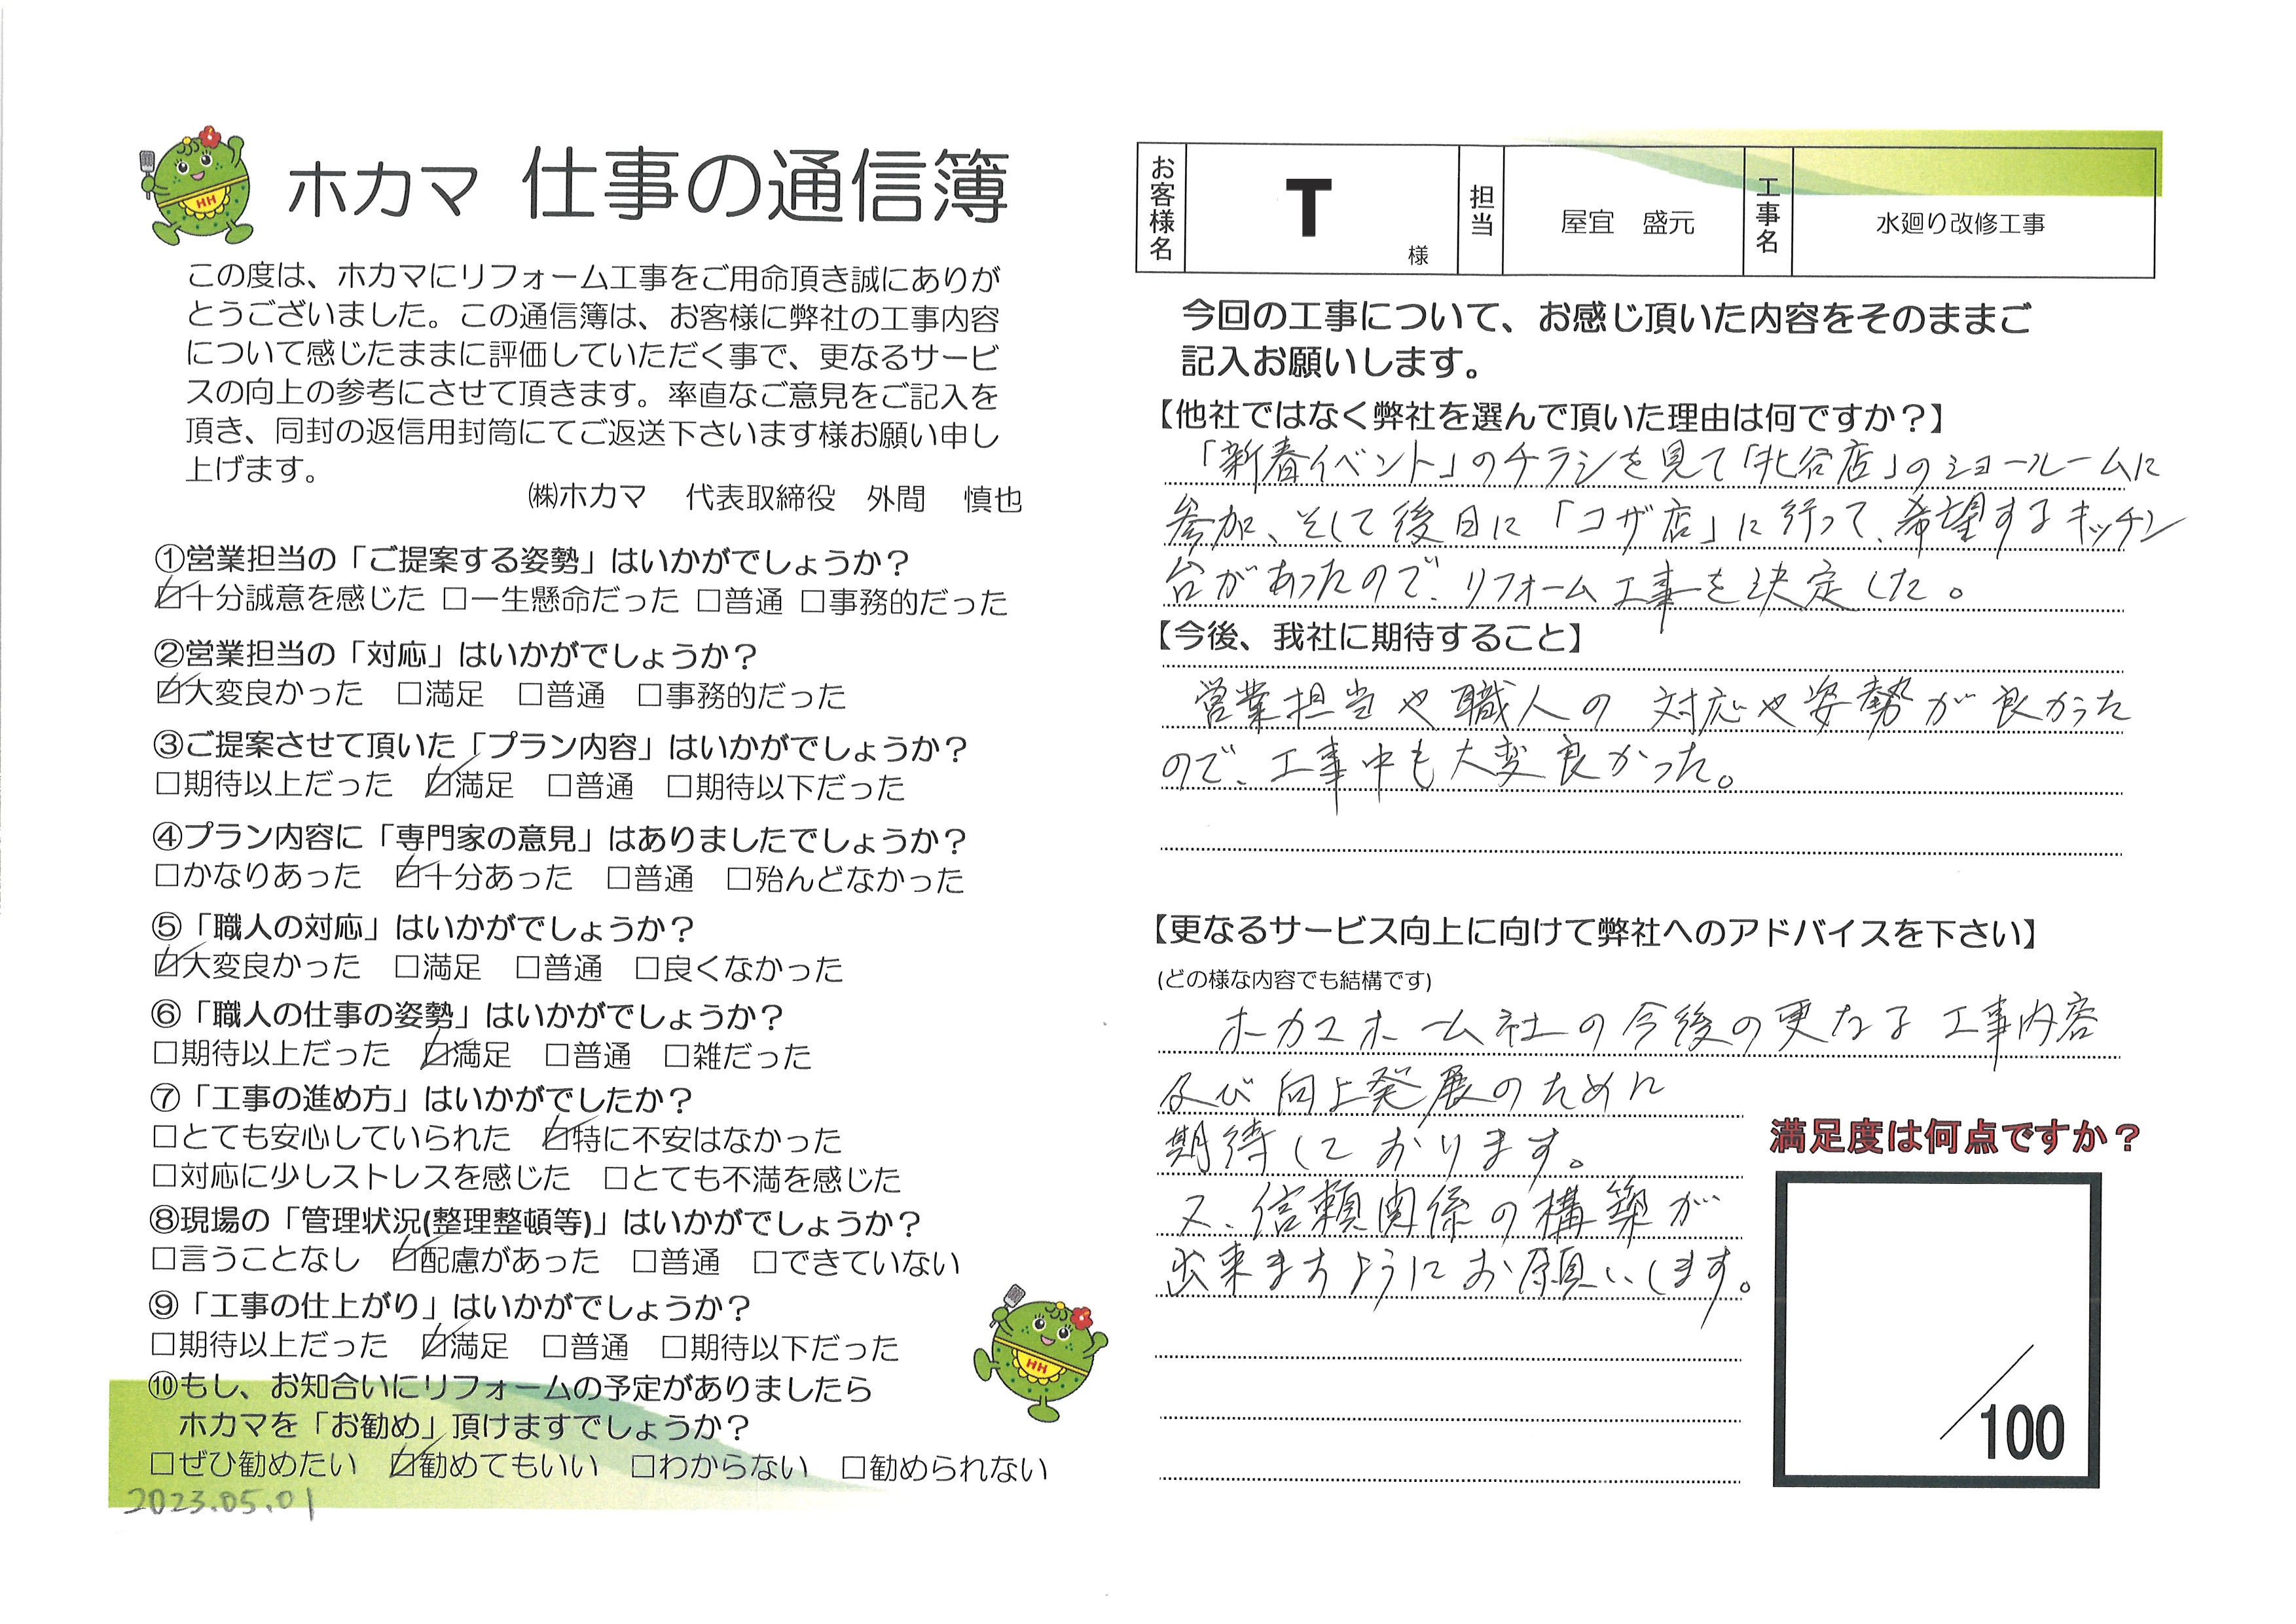 ホカマ 仕事の通信簿
この度は、ホカマにリフォーム工事をご用命頂き誠にありが
とうございました。この通信簿は、お客様に弊社の工事内容
について感じたままに評価していただく事で、更なるサービ
スの向上の参考にさせて頂きます。率直なご意見をご記入を
頂き、同封の返信用封筒にてご返送下さいます様お願い申し
上げます。
㈱ホカマ 代表取締役 外間 慎也
①営業担当の「ご提案する姿勢」はいかがでしょうか？
☑十分誠意を感じた □一生懸命だった □普通 □事務的だった
②営業担当の「対応」はいかがでしょうか？
☑大変良かった □満足 □普通 □事務的だった
③ご提案させて頂いた「プラン内容」はいかがでしょうか？
□期待以上だった ☑満足 □普通 □期待以下だった
④プラン内容に「専門家の意見」はありましたでしょうか？
□かなりあった ☑十分あった □普通 □殆んどなかった
⑤「職人の対応」はいかがでしょうか？
☑大変良かった □満足 □普通 □良くなかった
⑥「職人の仕事の姿勢」はいかがでしょうか？
□期待以上だった ☑満足 □普通 □雑だった
⑦「工事の進め方」はいかがでしたか？
□とても安心していられた ☑特に不安はなかった
□対応に少しストレスを感じた □とても不満を感じた
⑧現場の「管理状況(整理整頓等)」はいかがでしょうか？
□言うことなし ☑配慮があった □普通 □できていない
⑨「工事の仕上がり」はいかがでしょうか？
□期待以上だった ☑満足 □普通 □期待以下だった
⑩もし、お知合いにリフォームの予定がありましたら
ホカマを「お勧め」頂けますでしょうか？
□ぜひ勧めたい ☑勧めてもいい □わからない □勧められない
2023.05.01
HH
HH
お客様名 T 様 担当 屋宜 盛元 工事名 水廻り改修工事
今回の工事について、お感じ頂いた内容をそのままご
記入お願いします。
【他社ではなく弊社を選んで頂いた理由は何ですか？】
「新春イベント」のチラシを見て「北谷店」のショールームに
参加、そして後日に「コザ店」に行って、希望するキッチン
台があったので、リフォーム工事を決定した。
【今後、我社に期待すること】
営業担当や職人の対応や姿勢が良かった
ので、工事中も大変良かった。
【更なるサービス向上に向けて弊社へのアドバイスを下さい】
(どの様な内容でも結構です)
ホカマホーム社の今後の更なる工事内容
及び向上発展のために
期待しております。
又、信頼関係の構築が
出来ますようにお願いします。
満足度は何点ですか？
/100